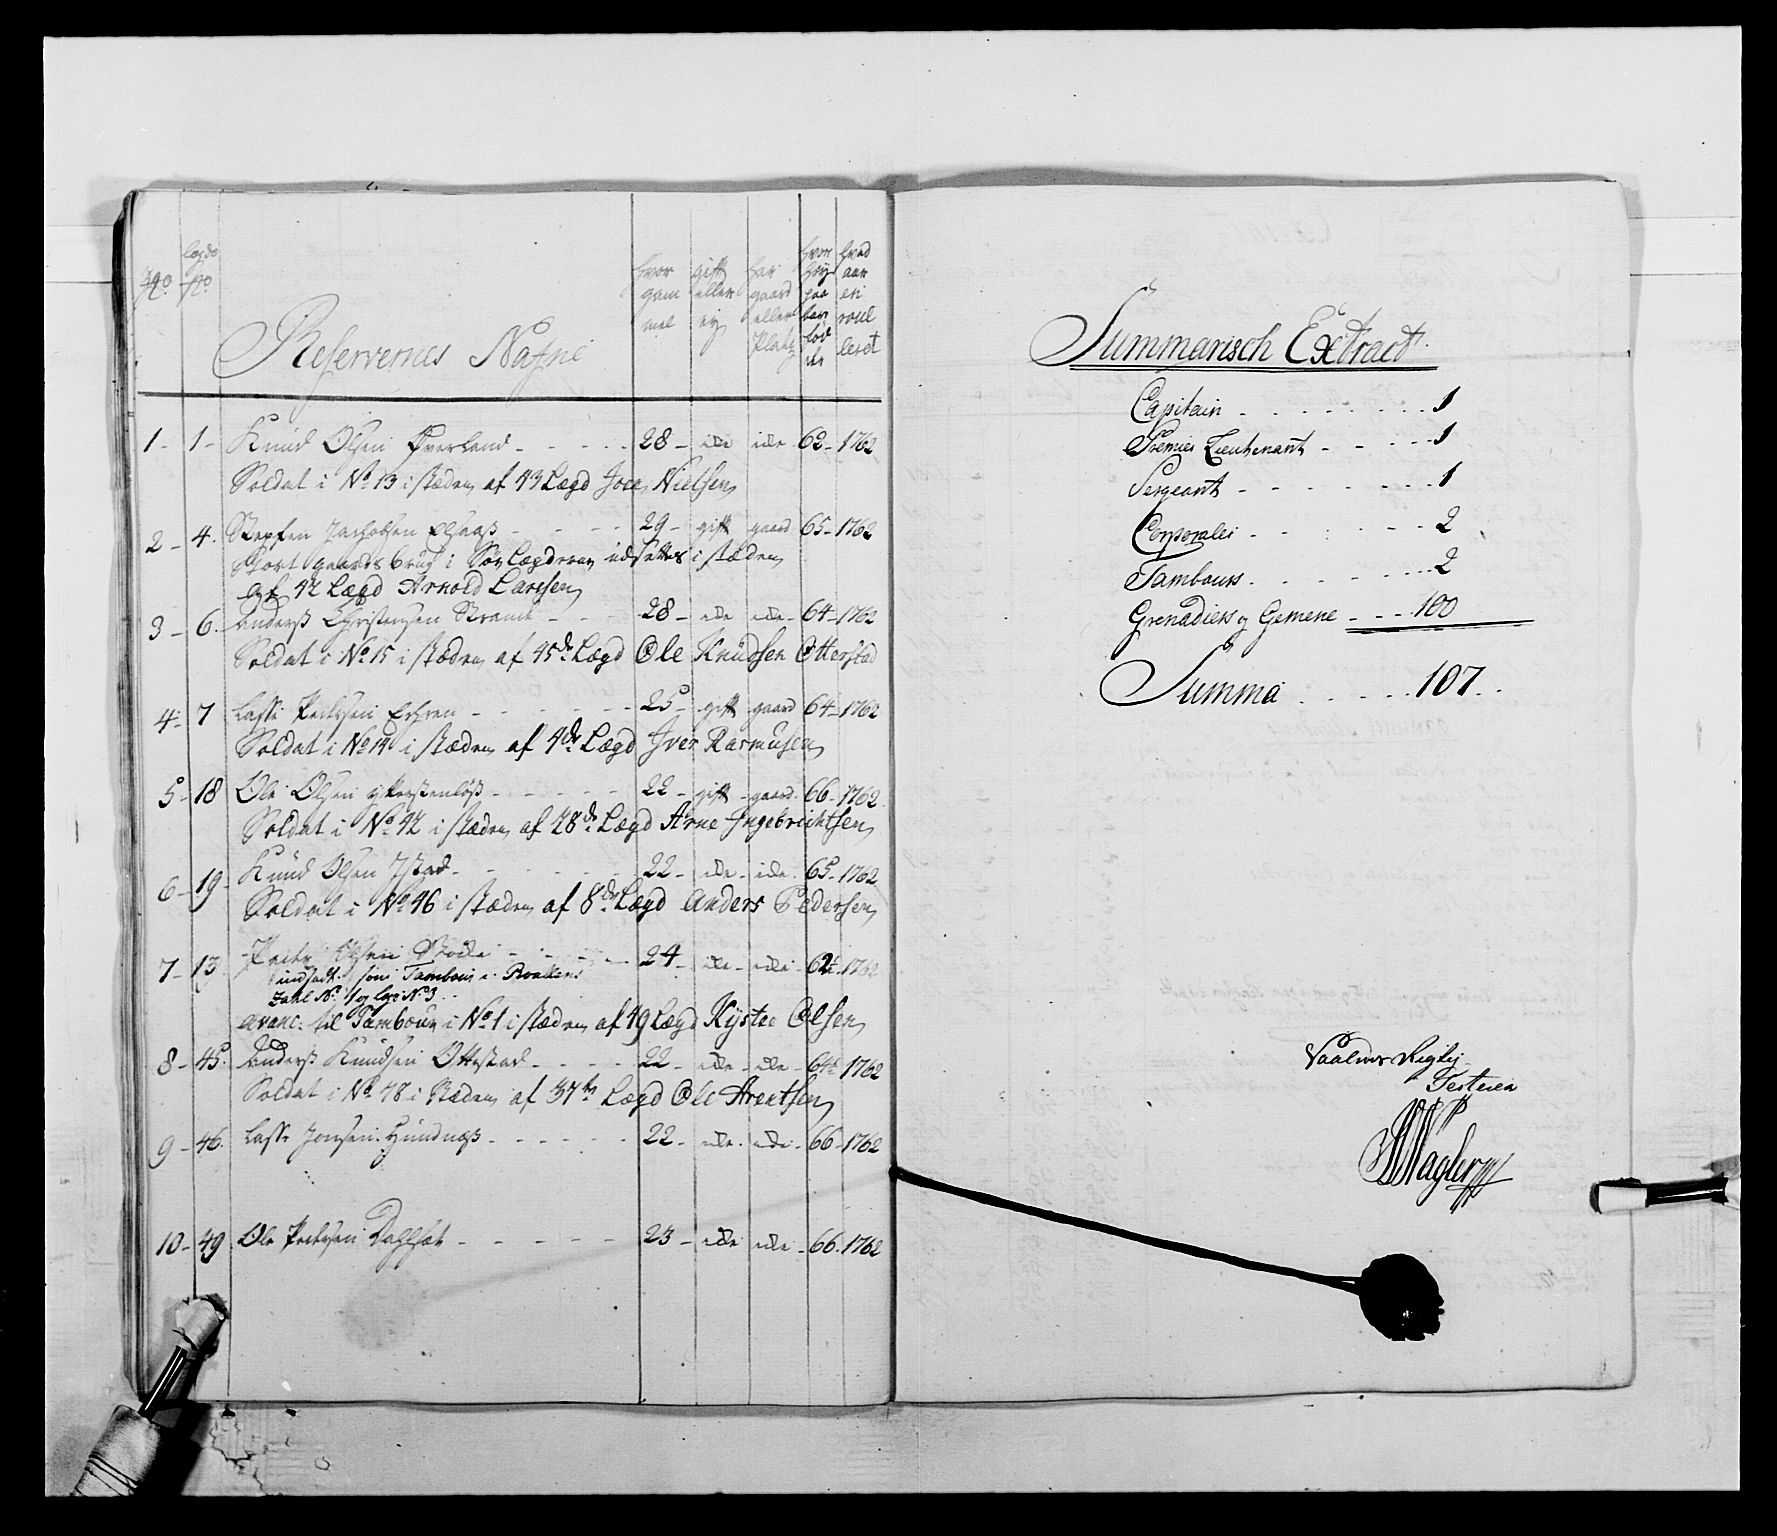 No. lægds No. Reservernes Nafne hvor gammel gift eller ej har gaard eller Platz hvor høy paa bare fød hvad aar enroulleret
1 - 1 - Knud Olsen Øverland - - - 28 - ide ide 62 - 1762
Soldat i No 13 i stæden af 43 Lægd Joen Nielsen
2 - 4. Steffen Jachobsen - - - 29 - gift gaard 65 - 1762
gaards brug i Søe Lægderne udsættes i stæden
af 42 Lægd Arnold Larssen
3 - 6. Anders Christensen - - - 28 - ide ide - 64 - 1762
Soldat i No 15 i stæden af 45de Lægd Ole Knudsen Otterstad
4 - 7 Lasse Pedersen - - - 25 - gift gaard 64 - 1762
Soldat i No 14 i stæden af 4de Lægd Iver Rasmusen
5 - 18 Ole Olsen - - - 22 - gift - gaard. 66 - 1762
Soldat i No 42 i stæden af 28de Lægd Arne Ingebrichtsen
6 - 19 - Knud Olsen Istad - - - 22 - ide - ide. 65 - 1762
Soldat i No 46 i stæden af 8de Lægd Anders Pedersen
7 - 13. Peder Olsen - - - 24 - ide - ide 62 1762
indsadt som Tambour i Roullens
No 1 og No 3
avanc: til Tambour i No 1 i stæden af 49 Lægd Kysten Olsen
8 - 45. Anders Knudsen Otterstad - - - 22 - ide - ide - 64 1762
Soldat i No 48 i Stæden af 37te Lægd Ole Arentsen
9 - 46. Lasse Jonsen Hundnæss - - - 22 - ide - ide - 66 - 1762
10 - 49. Ole Pedersen - - - 23 - ide ide - 66. 1762
Summarisch Extract.
Capitain - - - 1
Premier Lieutenant - - - 1
Sergeant - - - 1
Corporaler - - - 2
Tambours - - - 2
Grenadiers og Gemene - - - 100
Summa . . . 107.
Saaledes Rigtig
Testerer
Wagler